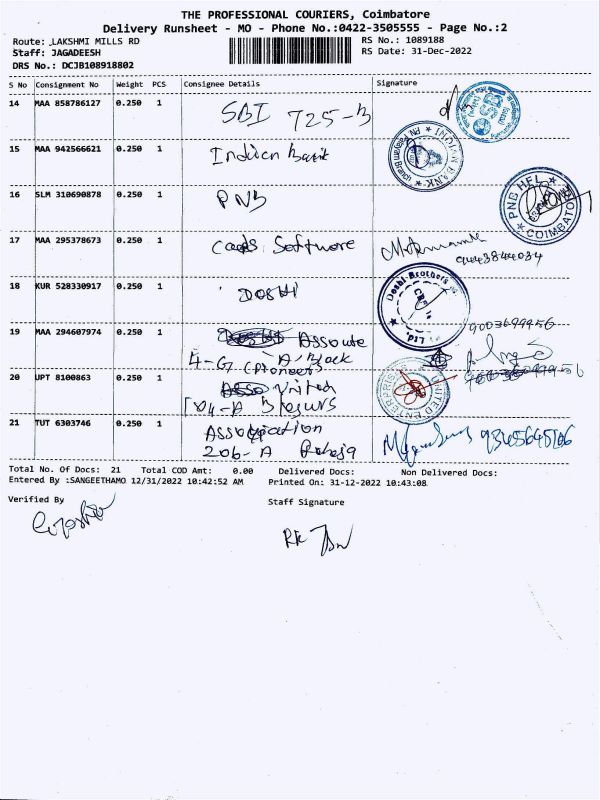 THE PROFESSIONAL COURIERS, Coimbatore
Delivery Runsheet - MO - Phone No.:0422-3505555 - Page No.:2
Route: LAKSHMI MILLS RD
RS No.: 1089188
Staff: JAGADEESH
RS Date: 31-Dec-2022
DRS No.: DCJB108918802
S No Consignment No Weight PCS Consignee Details Signature
14 MAA 858786127 0.250 1 SBI 725-B
15 MAA 942566621 0.250 1 Indian Bank
INDIAN BANK
16 SLM 310690878 0.250 1 PNB
PNB HFL
COIMBATORE
17 MAA 295378673 0.250 1 Software
18 KUR 528330917 0.250 1 DOSHI
Doshi Brothers
Ltd.
19 MAA 294607974 0.250 1 9003699956
4-G (Pioneer) A/Back
20 UPT 8100863 0.250 1 United
104-A
UNITED ENTERPRISE
21 TUT 6303746 0.250 1 Association
206-A Raheja
Total No. Of Docs: 21 Total COD Amt: 0.00 Delivered Docs: Non Delivered Docs:
Entered By :SANGEETHAMO 12/31/2022 10:42:52 AM Printed On: 31-12-2022 10:43:08
Verified By
Staff Signature